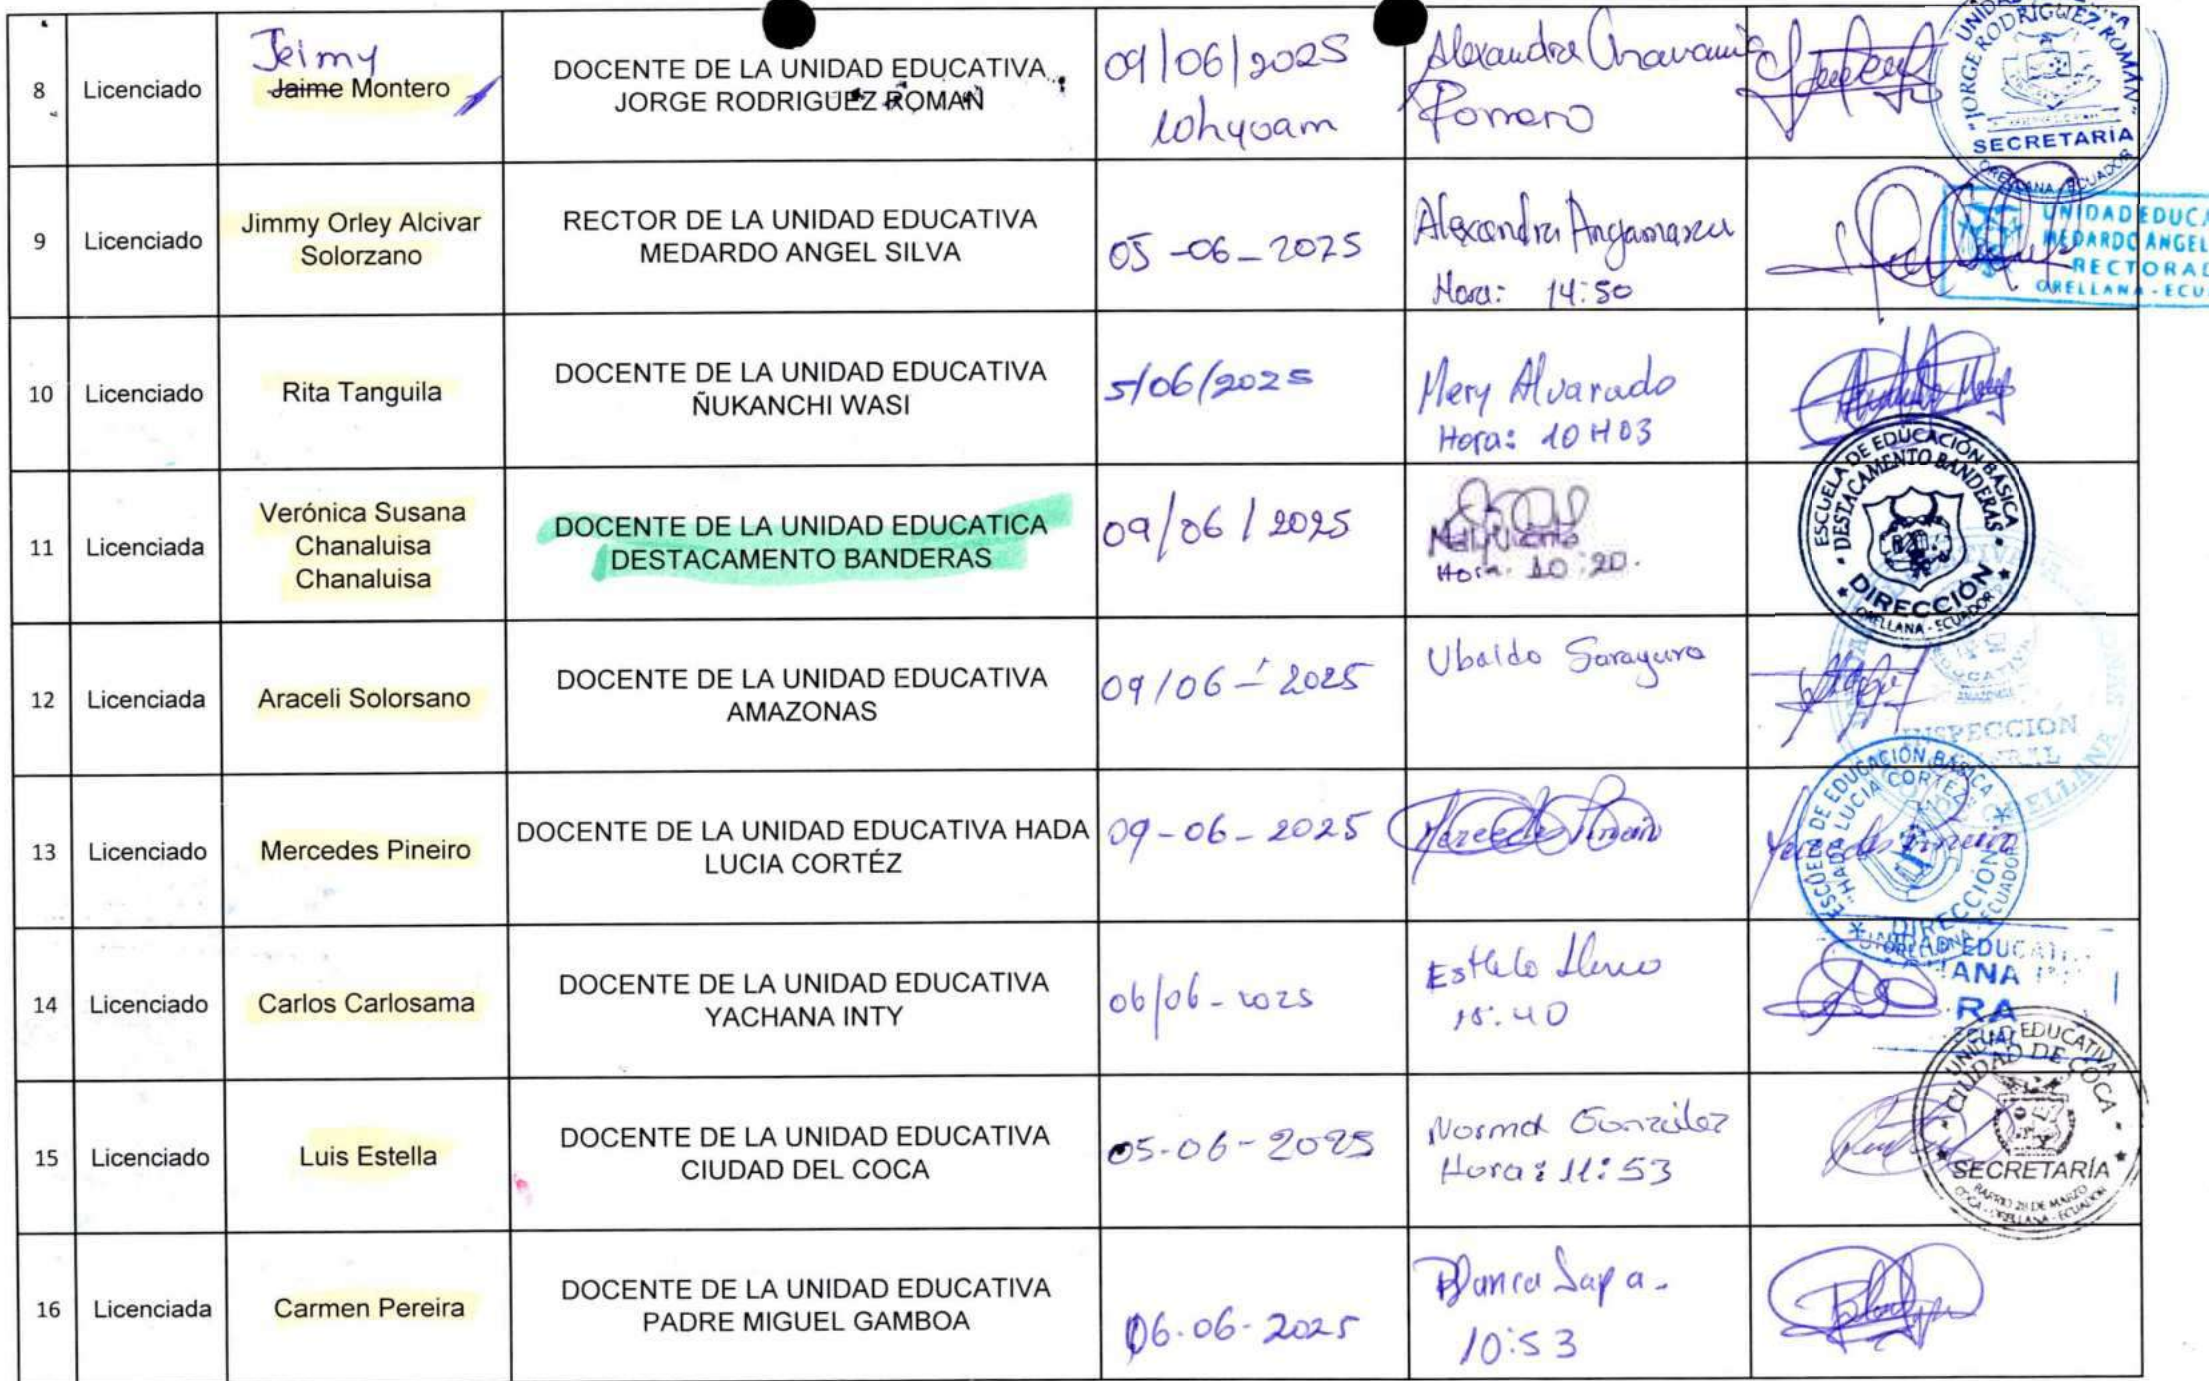 8
Licenciado
Jeimy
Jaime Montero
DOCENTE DE LA UNIDAD EDUCATIVA
JORGE RODRIGUEZ ROMAN
09/06/2025
10h40am
Alexandra
Romero
UNIDAD
"JORGE RODRÍGUEZ ROMÁN"
SECRETARIA
ORELLANA - ECUADOR
9
Licenciado
Jimmy Orley Alcivar
Solorzano
RECTOR DE LA UNIDAD EDUCATIVA
MEDARDO ANGEL SILVA
05-06-2025
Alexandra Angamarca
Hora: 14:50
UNIDAD EDUCA
MEDARDO ANGEL
RECTORAD
ORELLANA - ECU
10
Licenciado
Rita Tanguila
DOCENTE DE LA UNIDAD EDUCATIVA
ÑUKANCHI WASI
5/06/2025
Mery Alvarado
Hora: 10H03
11
Licenciada
Verónica Susana
Chanaluisa
Chanaluisa
DOCENTE DE LA UNIDAD EDUCATICA
DESTACAMENTO BANDERAS
09/06/2025
Hora: 10:20.
ESCUELA DE EDUCACIÓN BÁSICA
DESTACAMENTO BANDERAS
DIRECCIÓN
ORELLANA - ECUADOR
12
Licenciada
Araceli Solorsano
DOCENTE DE LA UNIDAD EDUCATIVA
AMAZONAS
09/06-2025
Ubaldo
INSPECCION
ORELLANA
13
Licenciado
Mercedes Pineiro
DOCENTE DE LA UNIDAD EDUCATIVA HADA
LUCIA CORTÉZ
09-06-2025
Mercedes Pineiro
Mercedes Pineiro
ESCUELA DE EDUCACIÓN BÁSICA
"HADA LUCIA CORTEZ"
DIRECCIÓN
ORELLANA - ECUADOR
14
Licenciado
Carlos Carlosama
DOCENTE DE LA UNIDAD EDUCATIVA
YACHANA INTY
06/06-2025
15:40
15
Licenciado
Luis Estella
DOCENTE DE LA UNIDAD EDUCATIVA
CIUDAD DEL COCA
05-06-2025
Norma González
Hora: 11:53
UNIDAD EDUCATIVA
CIUDAD DE COCA
SECRETARÍA
BARRIO 20 DE MARZO
COCA - ORELLANA - ECUADOR
16
Licenciada
Carmen Pereira
DOCENTE DE LA UNIDAD EDUCATIVA
PADRE MIGUEL GAMBOA
06-06-2025
Blanca Sapa.
10:53